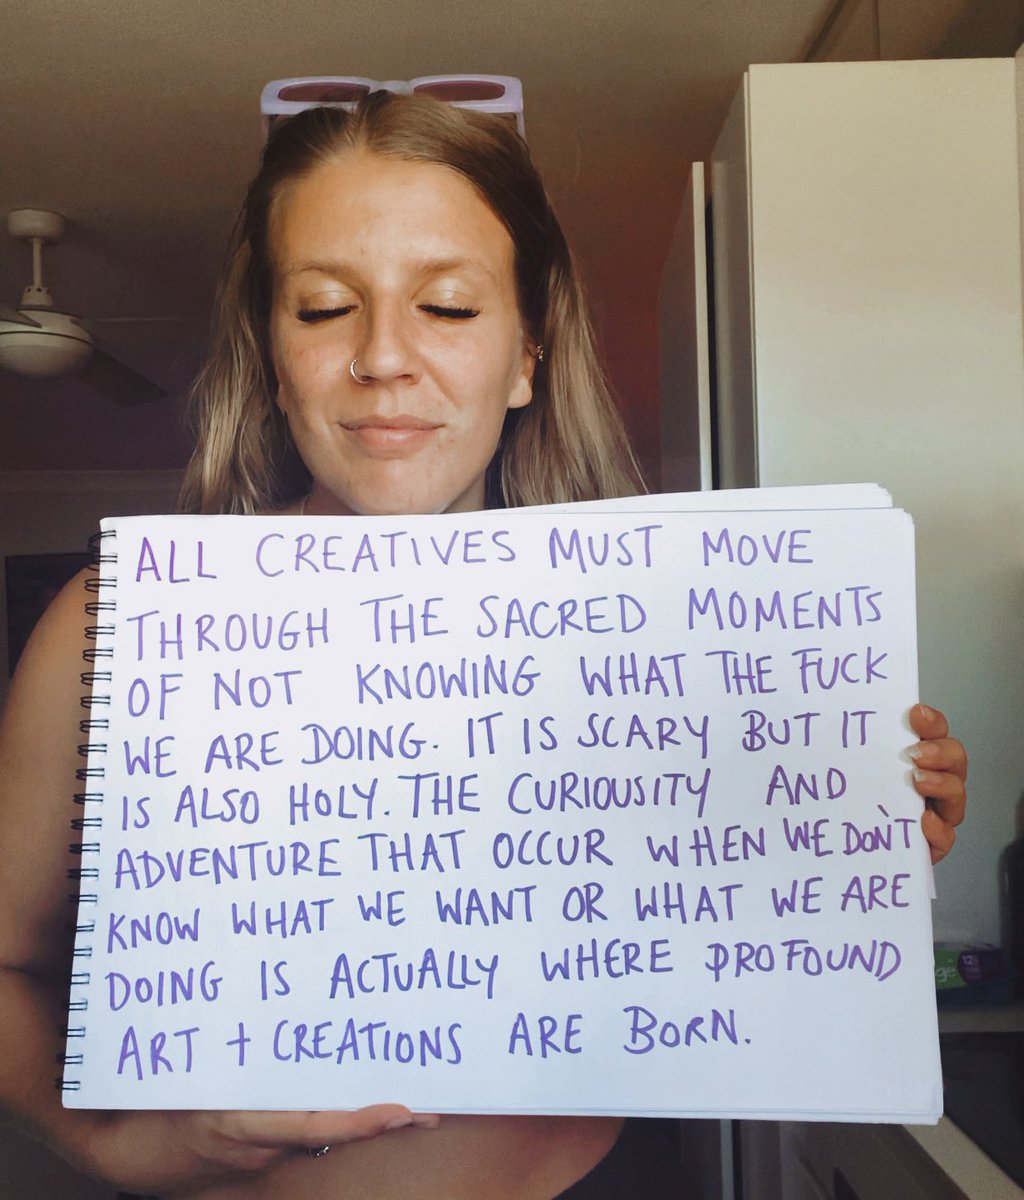 ALL CREATIVES MUST MOVE
THROUGH THE SACRED MOMENTS
OF NOT KNOWING WHAT THE FUCK
WE ARE DOING. IT IS SCARY BUT IT
IS ALSO HOLY. THE CURIOUSITY AND
ADVENTURE THAT OCCUR WHEN WE DON'T
KNOW WHAT WE WANT OR WHAT WE ARE
DOING IS ACTUALLY WHERE PROFOUND
ART + CREATIONS ARE BORN.